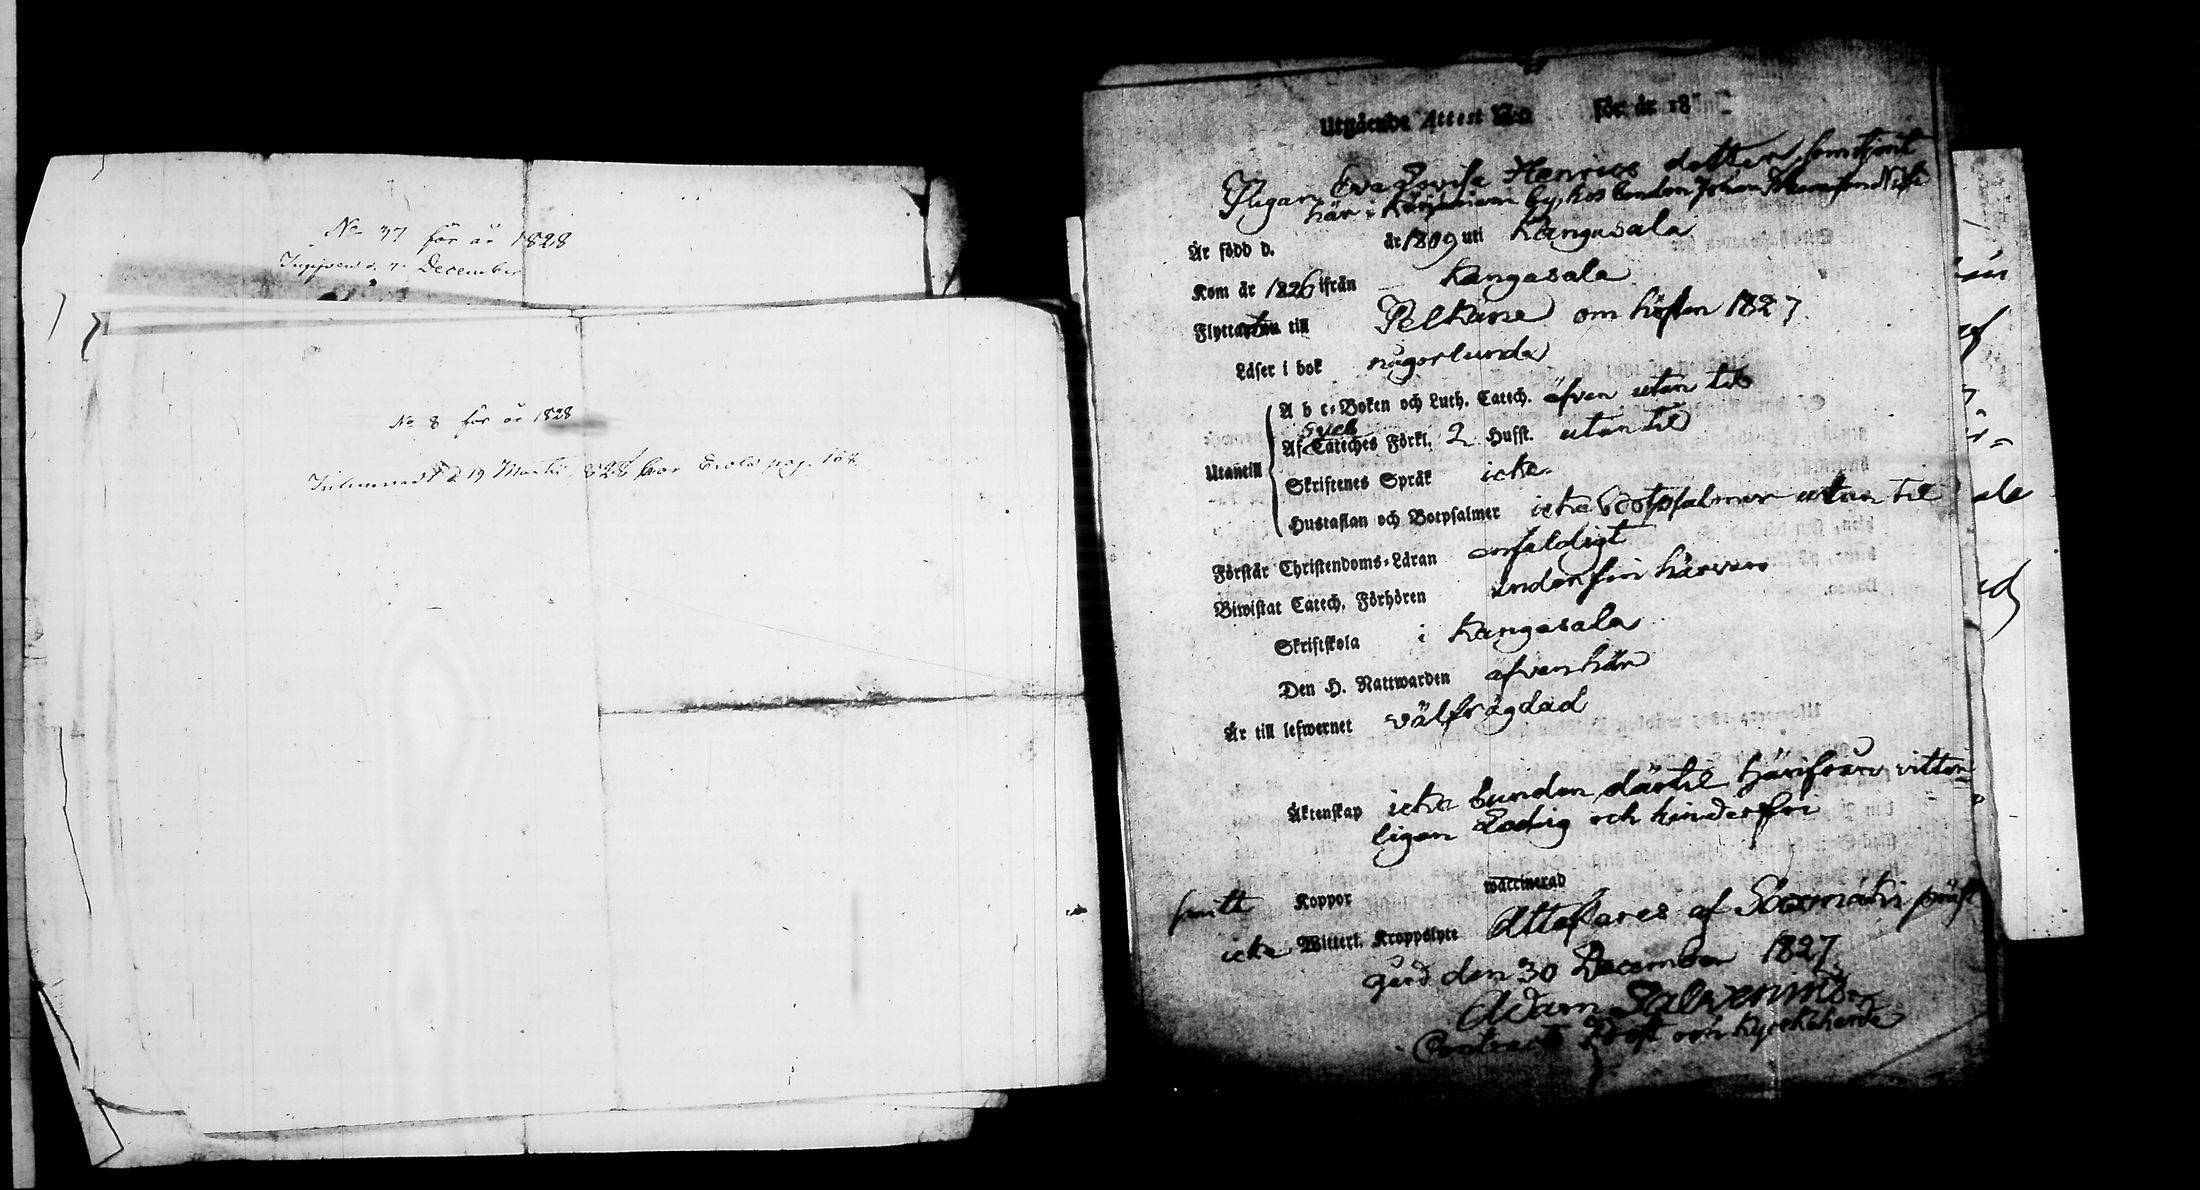 No 37 för år 1828
Ingifven d. 7. December
No 8 för år 1828
d 19 Martii 828 pag. 168
Utgående Attest N:o för år 18
Pigan Eva Lovisa Henrics dotter, som tjent
här i by, hos bonden Johan
Är född d. år 1809 uti Kangasala
Kom år 1826 ifrån Kangasala
Flytta till Pelkäne om hösten 1827
Läser i bok någorlunda
Utantill
A b c-Boken och Luth. Catech. äfven utan til
Af Sveb Cateches Förkl. 2 Hufst. utan til
Skriftenes Språk icke
Hustaflan och Botpsalmer icke botpsalmer utan til
Förstår Christendoms-Läran enfaldigt
Biwistat Catech. Förhören
Skriftskola i Kangasala
Den H. Nattwarden äfven här
Är till lefwernet välfrägdad
Äktenskap icke bunden, därtil härifrån vitter-
ligen Ledig och hinderfri
haft Koppor waccinerad
icke Witterl. Kroppslyte Attesteras af Saarmäki präst
gård den 30 December 1827
Adam Salvenius
Contracts Prost och Kyrckoherde